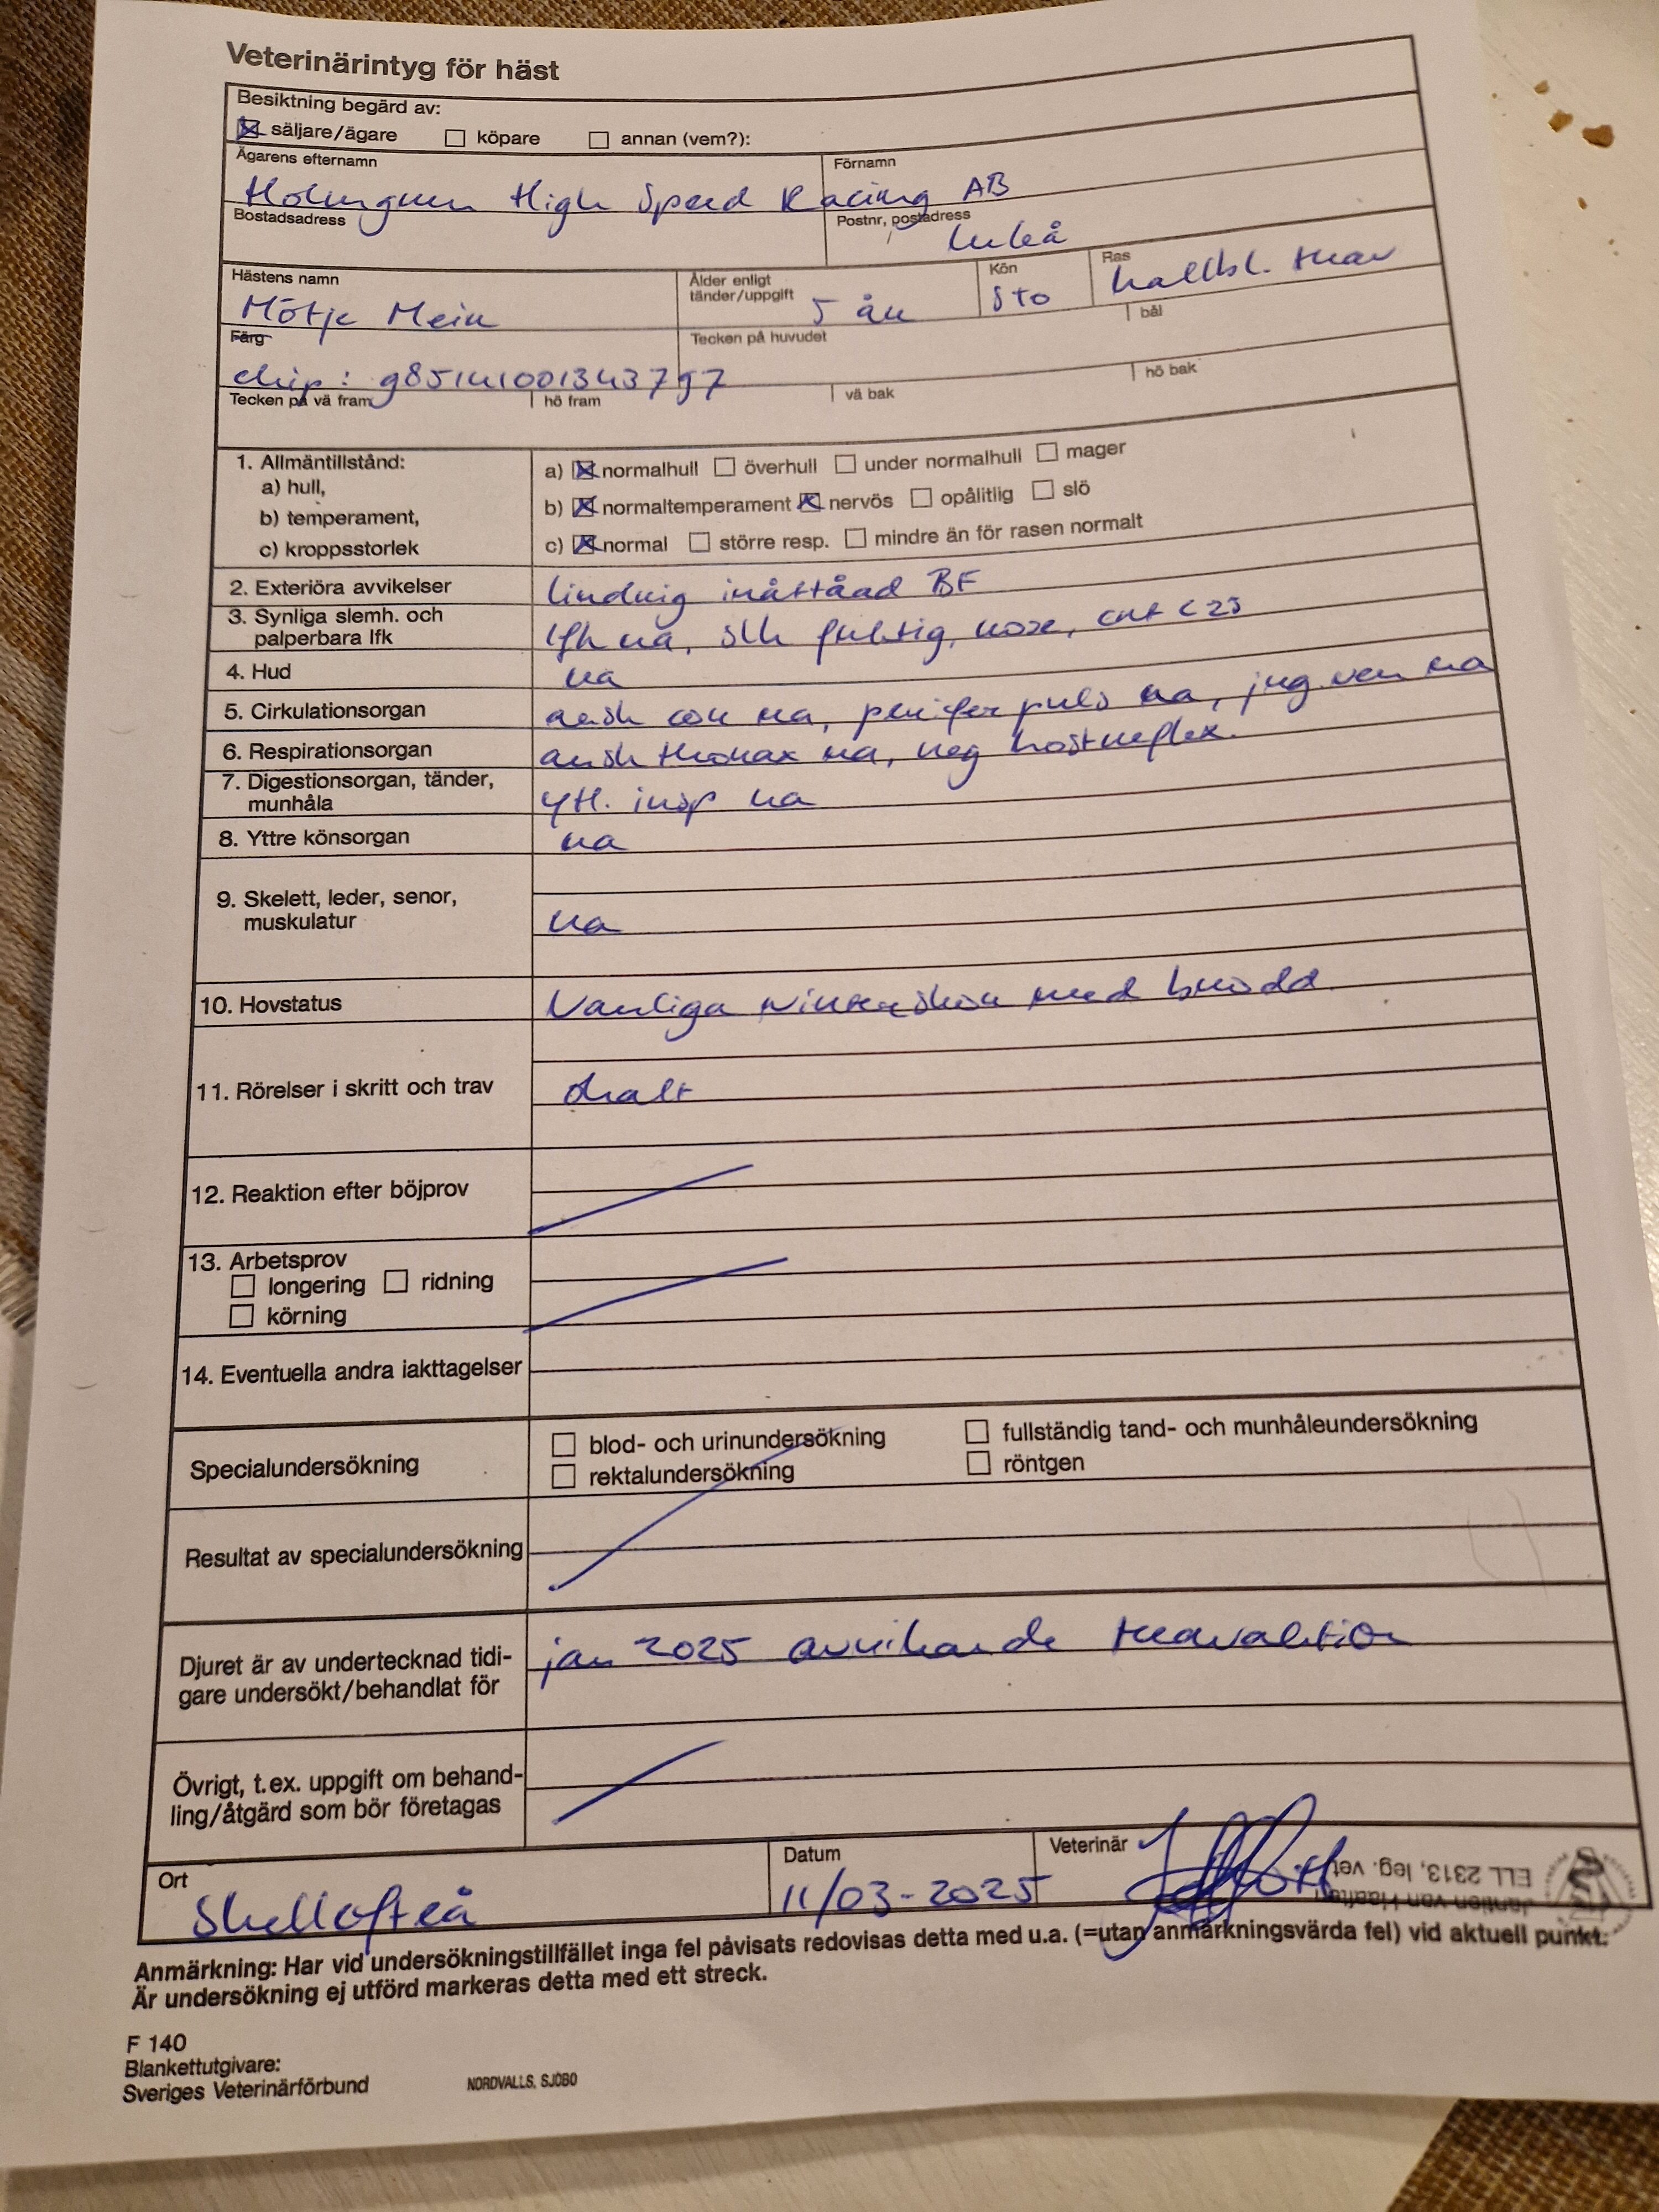 Veterinärintyg för häst
Besiktning begärd av:
säljare/ägare köpare annan (vem?):
Ägarens efternamn Förnamn
Holmgren High Speed Racing AB
Bostadsadress Postnr, postadress
Luleå
Hästens namn Ålder enligt tänder/uppgift Kön Ras
Mötje Mein 5 år Sto kallbl. trav
Färg Tecken på huvudet bål
chip:
Tecken på vä fram hö fram vä bak hö bak
1. Allmäntillstånd:
a) hull, a) normalhull överhull under normalhull mager
b) temperament, b) normaltemperament nervös opålitlig slö
c) kroppsstorlek c) normal större resp. mindre än för rasen normalt
2. Exteriöra avvikelser lindrig inåttåad BF
3. Synliga slemh. och palperbara lfk lfk ua, slh fuktig, rosa, CRT <2s
4. Hud ua
5. Cirkulationsorgan ausk cor ua, perifer puls ua, jug.ven ua
6. Respirationsorgan ausk thorax ua, neg hostreflex.
7. Digestionsorgan, tänder, munhåla ytl. insp ua
8. Yttre könsorgan ua
9. Skelett, leder, senor, muskulatur ua
10. Hovstatus Vanliga vinterskor med brodd
11. Rörelser i skritt och trav ohalt
12. Reaktion efter böjprov
13. Arbetsprov
longering ridning
körning
14. Eventuella andra iakttagelser
Specialundersökning blod- och urinundersökning fullständig tand- och munhåleundersökning
rektalundersökning röntgen
Resultat av specialundersökning
Djuret är av undertecknad tidi-
gare undersökt/behandlat för jan 2025 avvikande travaktion
Övrigt, t.ex. uppgift om behand-
ling/åtgärd som bör företagas
Ort Datum Veterinär
Skellefteå 11/03-2025
ELL 2313, leg. vet.
Anmärkning: Har vid undersökningstillfället inga fel påvisats redovisas detta med u.a. (=utan anmärkningsvärda fel) vid aktuell punkt.
Är undersökning ej utförd markeras detta med ett streck.
F 140
Blankettutgivare:
Sveriges Veterinärförbund NORDVALLS, SJÖBO